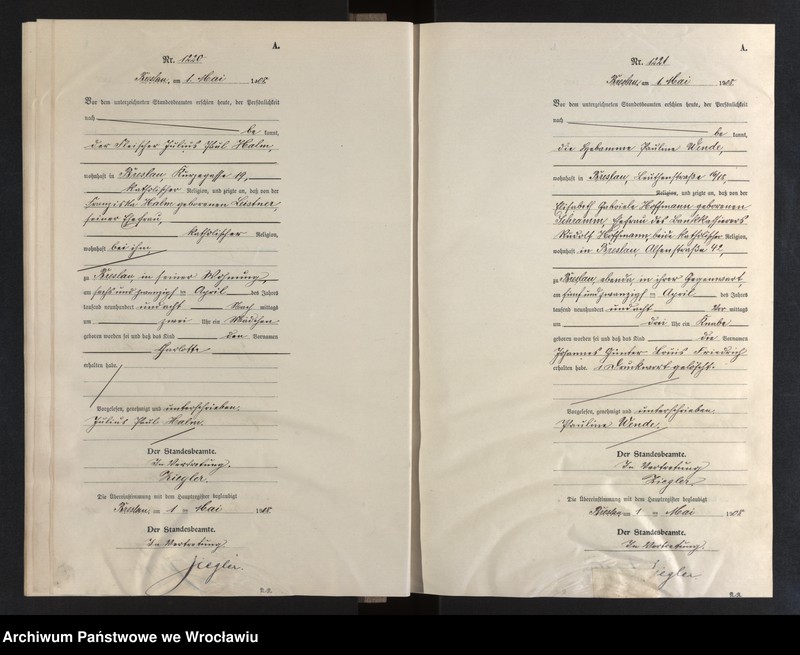 A.
Nr. 1220.
Breslau, am 1. Mai 1908.
Vor dem unterzeichneten Standesbeamten erschien heute, der Persönlichkeit
nach
be kannt,
der Fleischer Julius Paul Halm,
wohnhaft in Breslau, Kurzegasse 19,
katholischer Religion, und zeigte an, daß von der
Franziska Halm geborenen Leistner,
seiner Ehefrau,
katholischer Religion,
wohnhaft bei ihm,
zu Breslau, in seiner Wohnung,
am sechsundzwanzigsten April des Jahres
tausend neunhundert und acht Nach mittags
um zwei Uhr ein Mädchen
geboren worden sei und daß das Kind den Vornamen
Charlotte
erhalten habe.
Vorgelesen, genehmigt und unterschrieben.
Julius Paul Halm.
Der Standesbeamte.
In Vertretung.
Ziegler.
Die Übereinstimmung mit dem Hauptregister beglaubigt
Breslau, am 1 ten Mai 1908.
Der Standesbeamte.
In Vertretung.
Ziegler.
A.
Nr. 1221
Breslau, am 1. Mai 1908.
Vor dem unterzeichneten Standesbeamten erschien heute, der Persönlichkeit
nach
be kannt,
die Hebamme Pauline Wende,
wohnhaft in Breslau, Leuthenstraße
Religion, und zeigte an, daß von der
Elisabeth Gabriele Hoffmann geborenen
Schramm, Ehefrau des Bankkassierers
Rudolf Hoffmann, beide katholischer Religion,
wohnhaft in Breslau, Alsenstraße 42,
zu Breslau ebenda, in ihrer Gegenwart,
am fünfundzwanzigsten April des Jahres
tausend neunhundert und acht Vor mittags
um drei Uhr ein Knabe
geboren worden sei und daß das Kind die Vornamen
Johannes Günter Louis Friedrich
erhalten habe. 1 Druckwort gelöscht.
Vorgelesen, genehmigt und unterschrieben.
Pauline Wende.
Der Standesbeamte.
In Vertretung
Ziegler.
Die Übereinstimmung mit dem Hauptregister beglaubigt
Breslau, am 1 ten Mai 1908
Der Standesbeamte.
In Vertretung.
Ziegler
Archiwum Państwowe we Wrocławiu